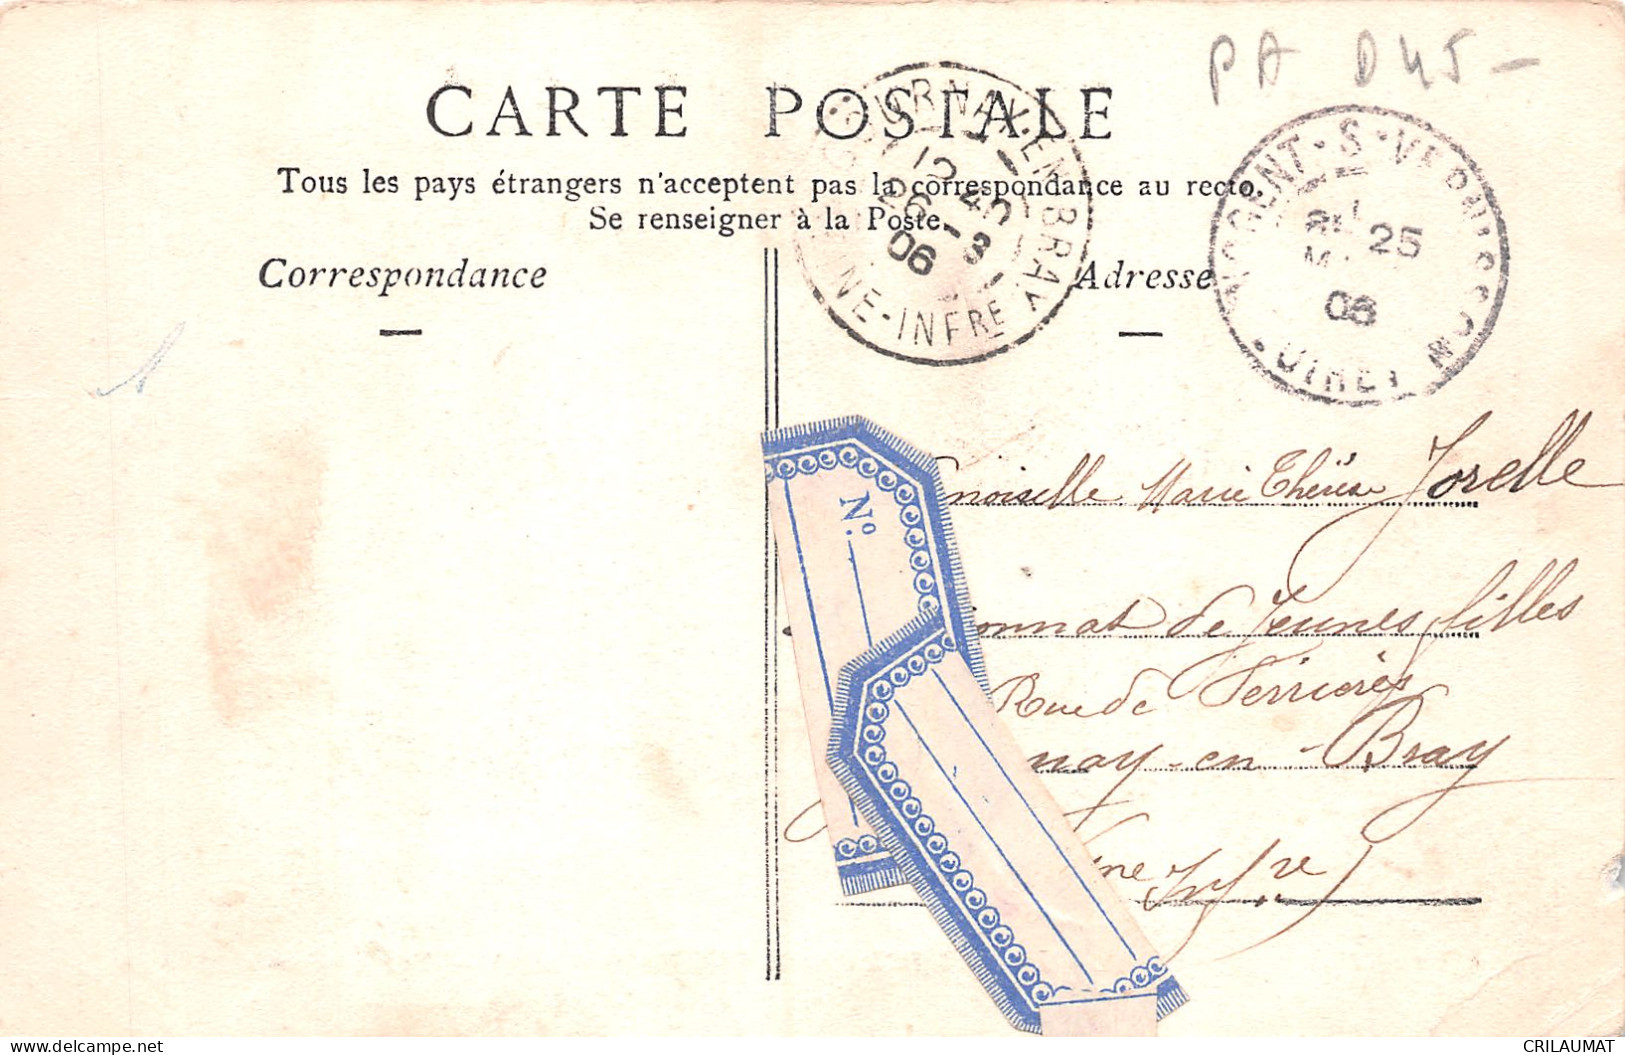 PA D45-
CARTE POSTALE
Tous les pays étrangers n'acceptent pas la correspondance au recto.
Se renseigner à la Poste.
Correspondance
Adresse
GOURNAY-EN-BRAY
12 40
26 -3
06
SEINE-INFRE
NOGENT·S·VERNISSON
25
06
LOIRET
N°
moiselle Marie Thérèse Jorelle
onnat de Jeunes filles
Rue de Ferrières
nay-en-Bray
ine Infre
delcampe.net
CRILAUMAT